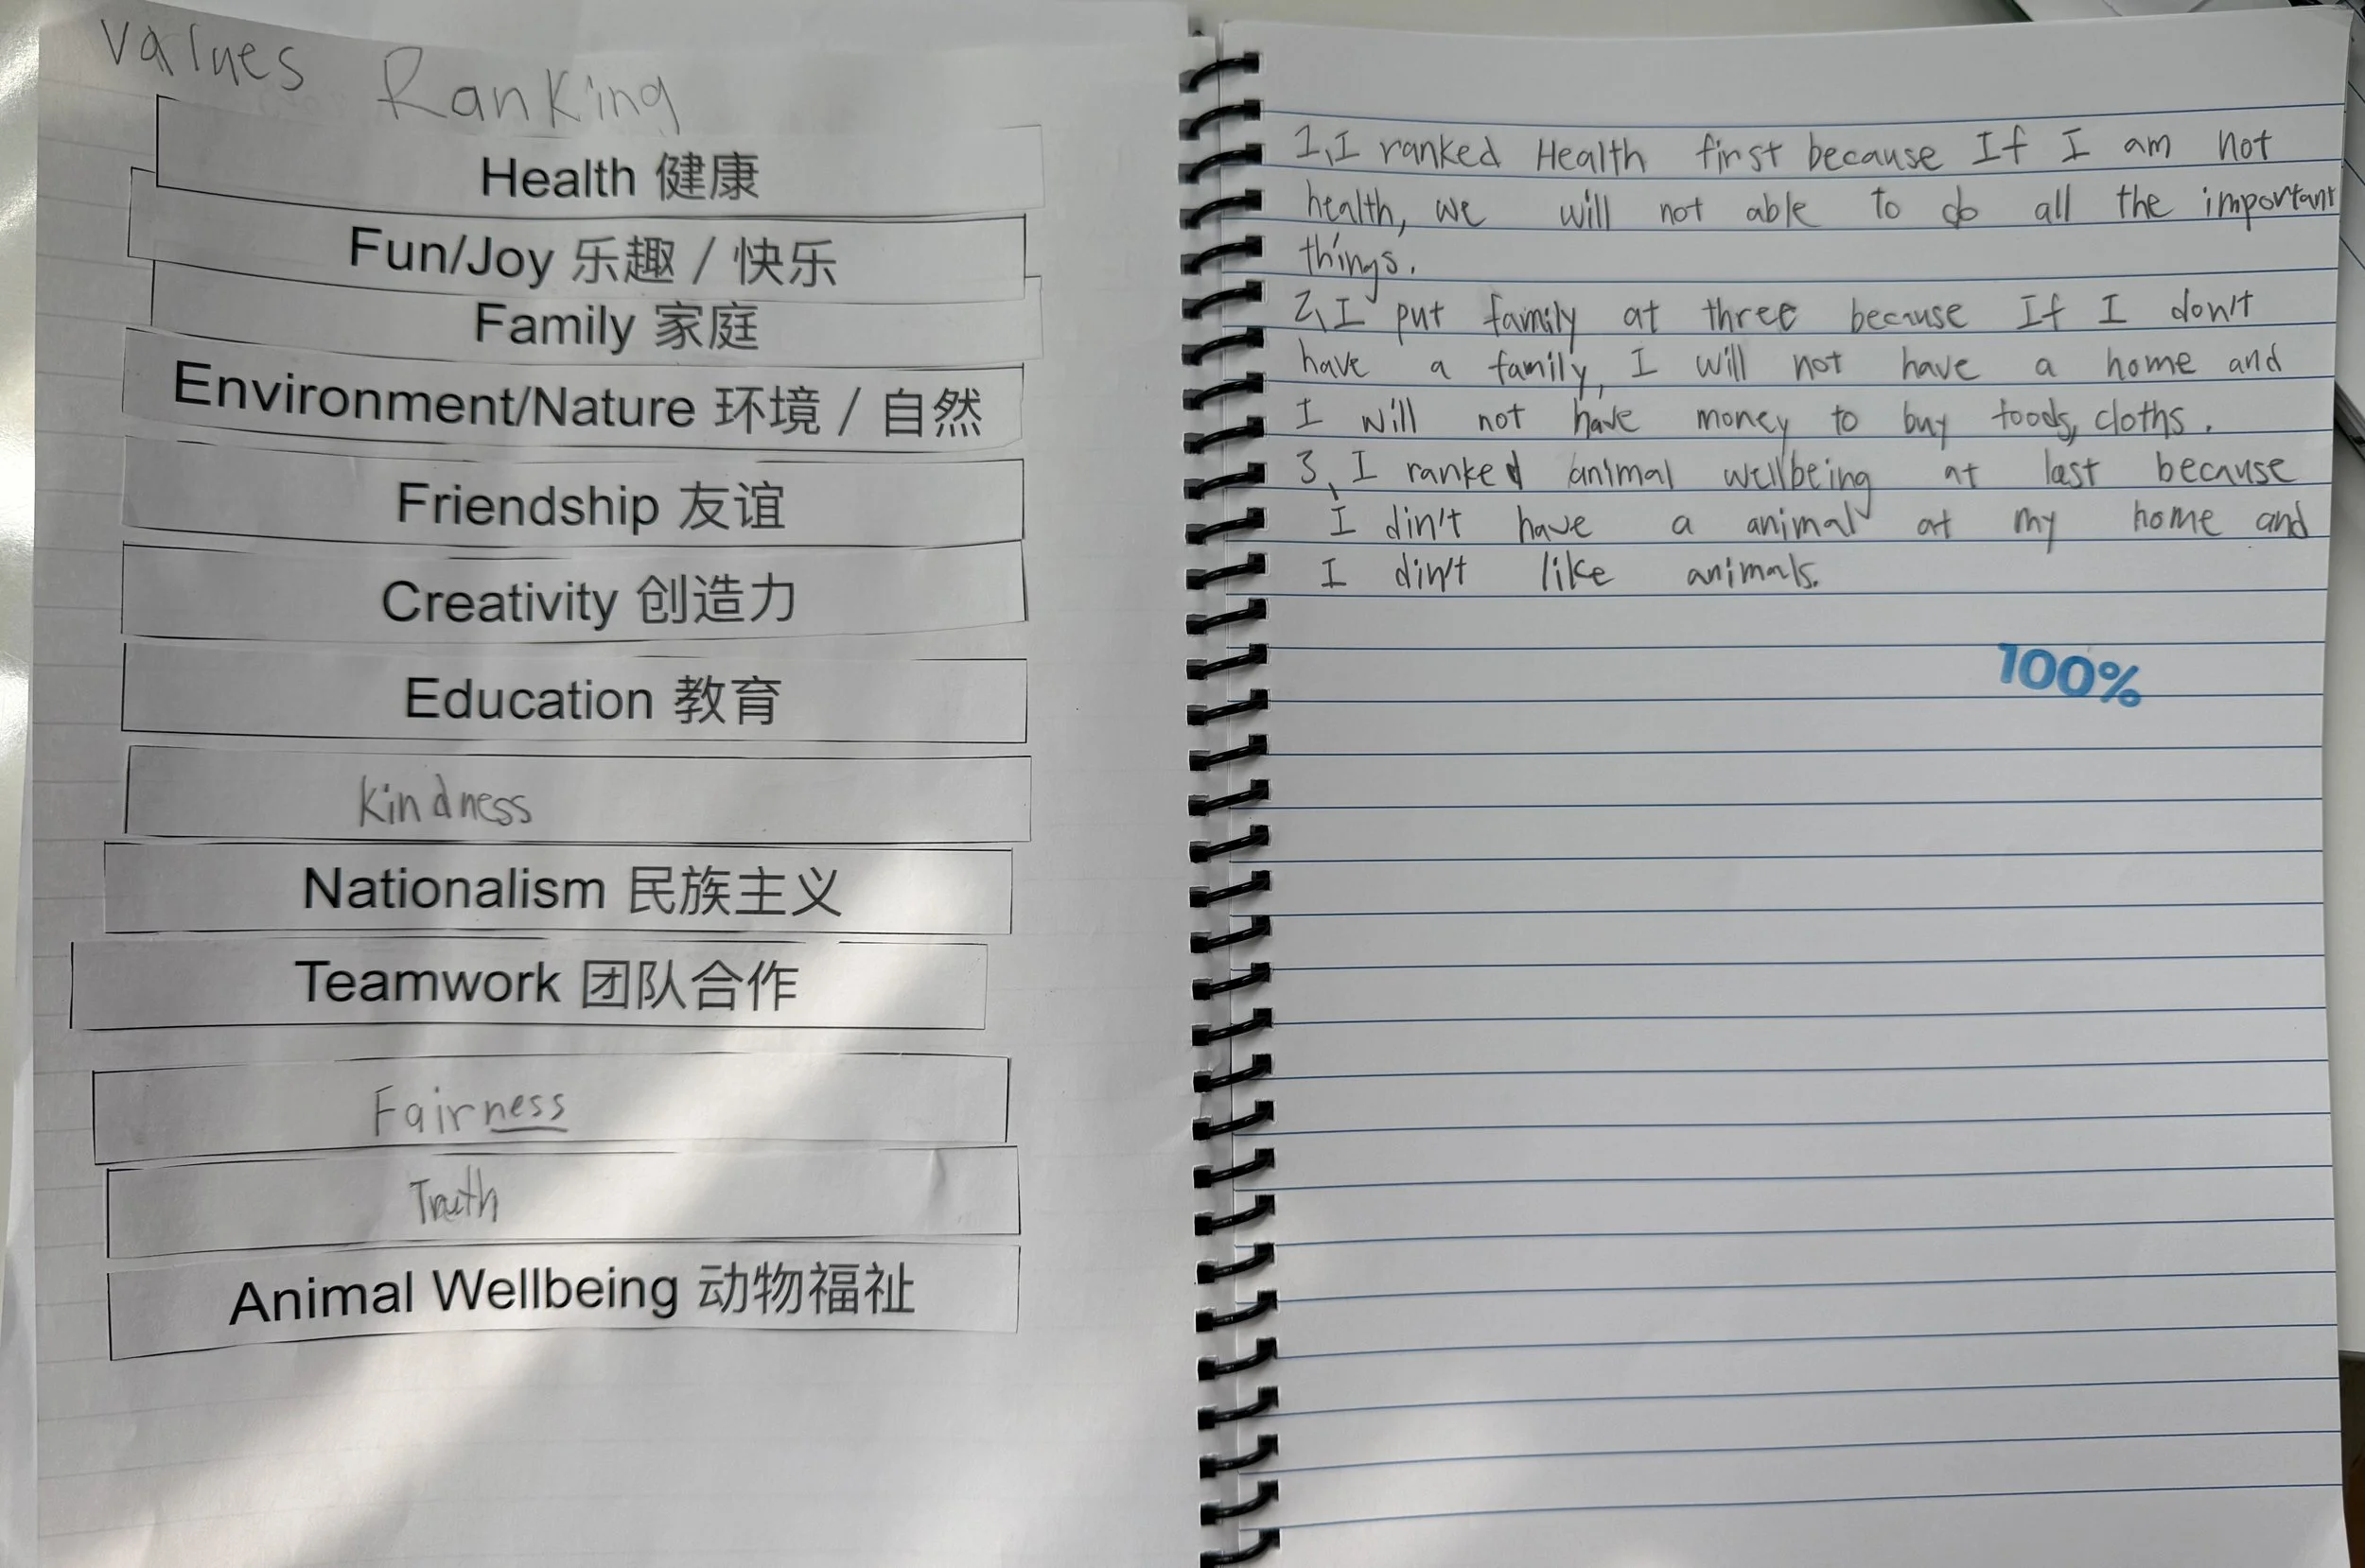 Values Ranking
Health 健康
Fun/Joy 乐趣 / 快乐
Family 家庭
Environment/Nature 环境 / 自然
Friendship 友谊
Creativity 创造力
Education 教育
Kindness
Nationalism 民族主义
Teamwork 团队合作
Fairness
Truth
Animal Wellbeing 动物福祉
1, I ranked Health first because If I am not
health, we will not able to do all the important
things.
2, I put family at three because If I don't
have a family, I will not have a home and
I will not have money to buy foods, cloths.
3, I ranked animal wellbeing at last because
I din't have a animal at my home and
I din't like animals.
100%